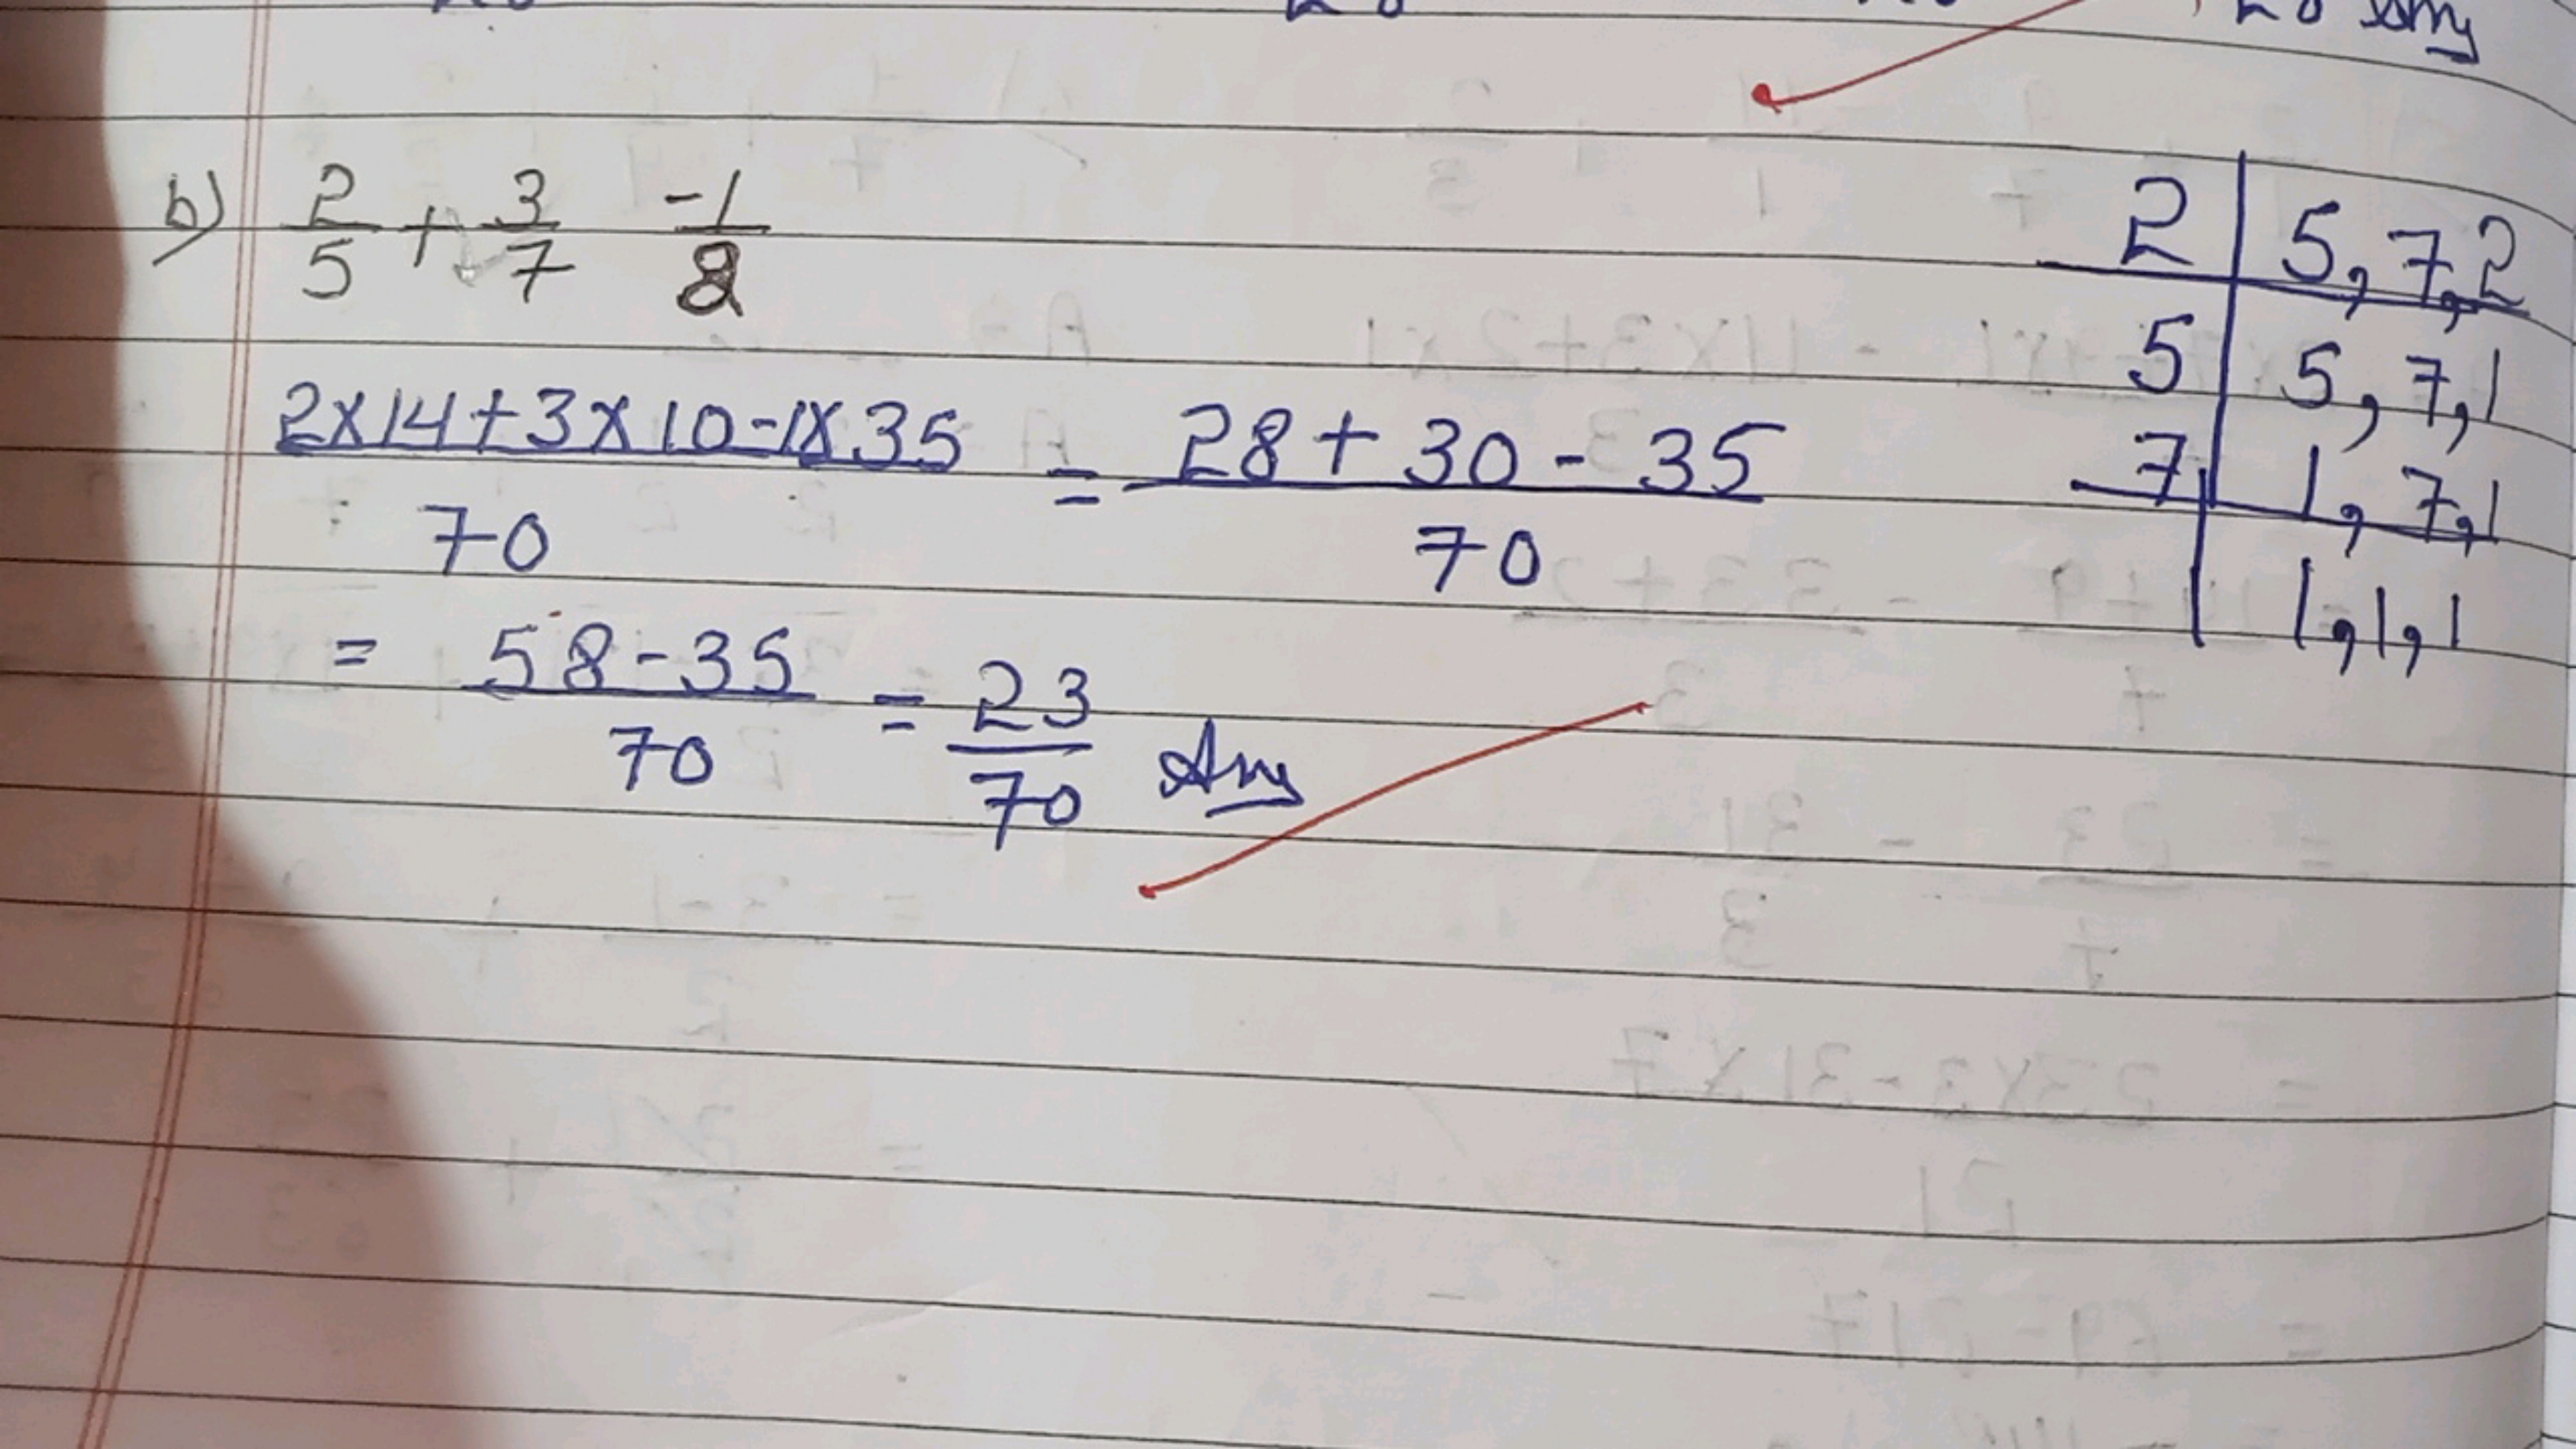 b) 2/5 + 3/7 -1/2
2x14+3x10-1x35 / 70 = 28+30-35 / 70
= 58-35 / 70 = 23/70 Ans
2 | 5,7,2
5 | 5,7,1
7 | 1,7,1
| 1,1,1